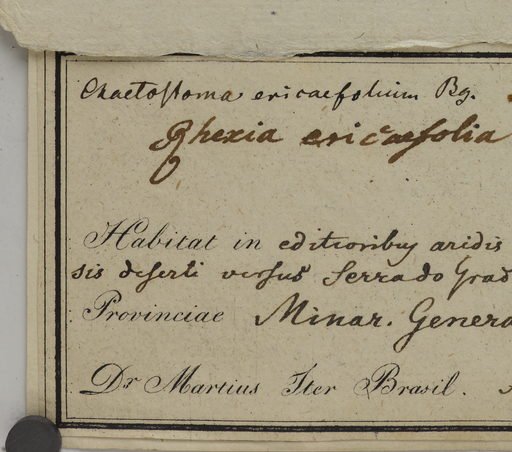 Chaetostoma ericaefolium Bg.
Rhexia ericaefolia
Habitat in editioribus aridis
sis deserti versus Serra do Grad
Provinciae Minar. Genera
Dr Martius Iter Brasil.